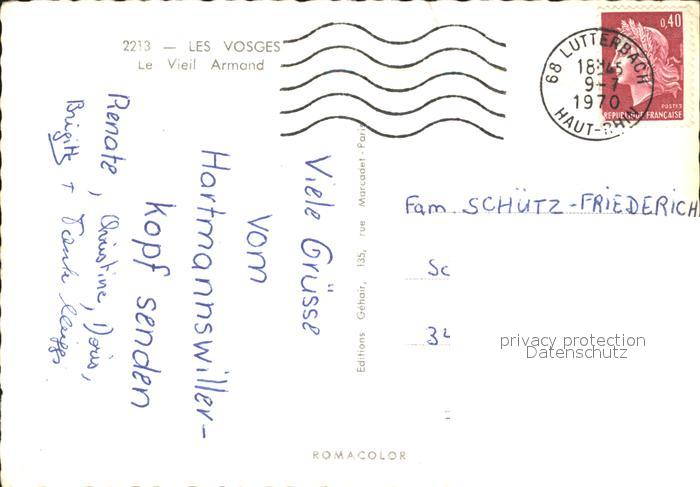 2213 — LES VOSGES
Le Vieil Armand
Viele Grüsse
vom
Hartmannswiller-
kopf senden
Renate, Christine, Doris,
Brigitte + Tante
Editions Géhair, 135, rue Marcadet - Paris
68 LUTTERBACH
18H45
9-7
1970
HAUT-RHIN
0,40
POSTES
REPUBLIQUE FRANÇAISE
Fam. SCHÜTZ-FRIEDERICH
Sc
32
privacy protection
Datenschutz
ROMACOLOR